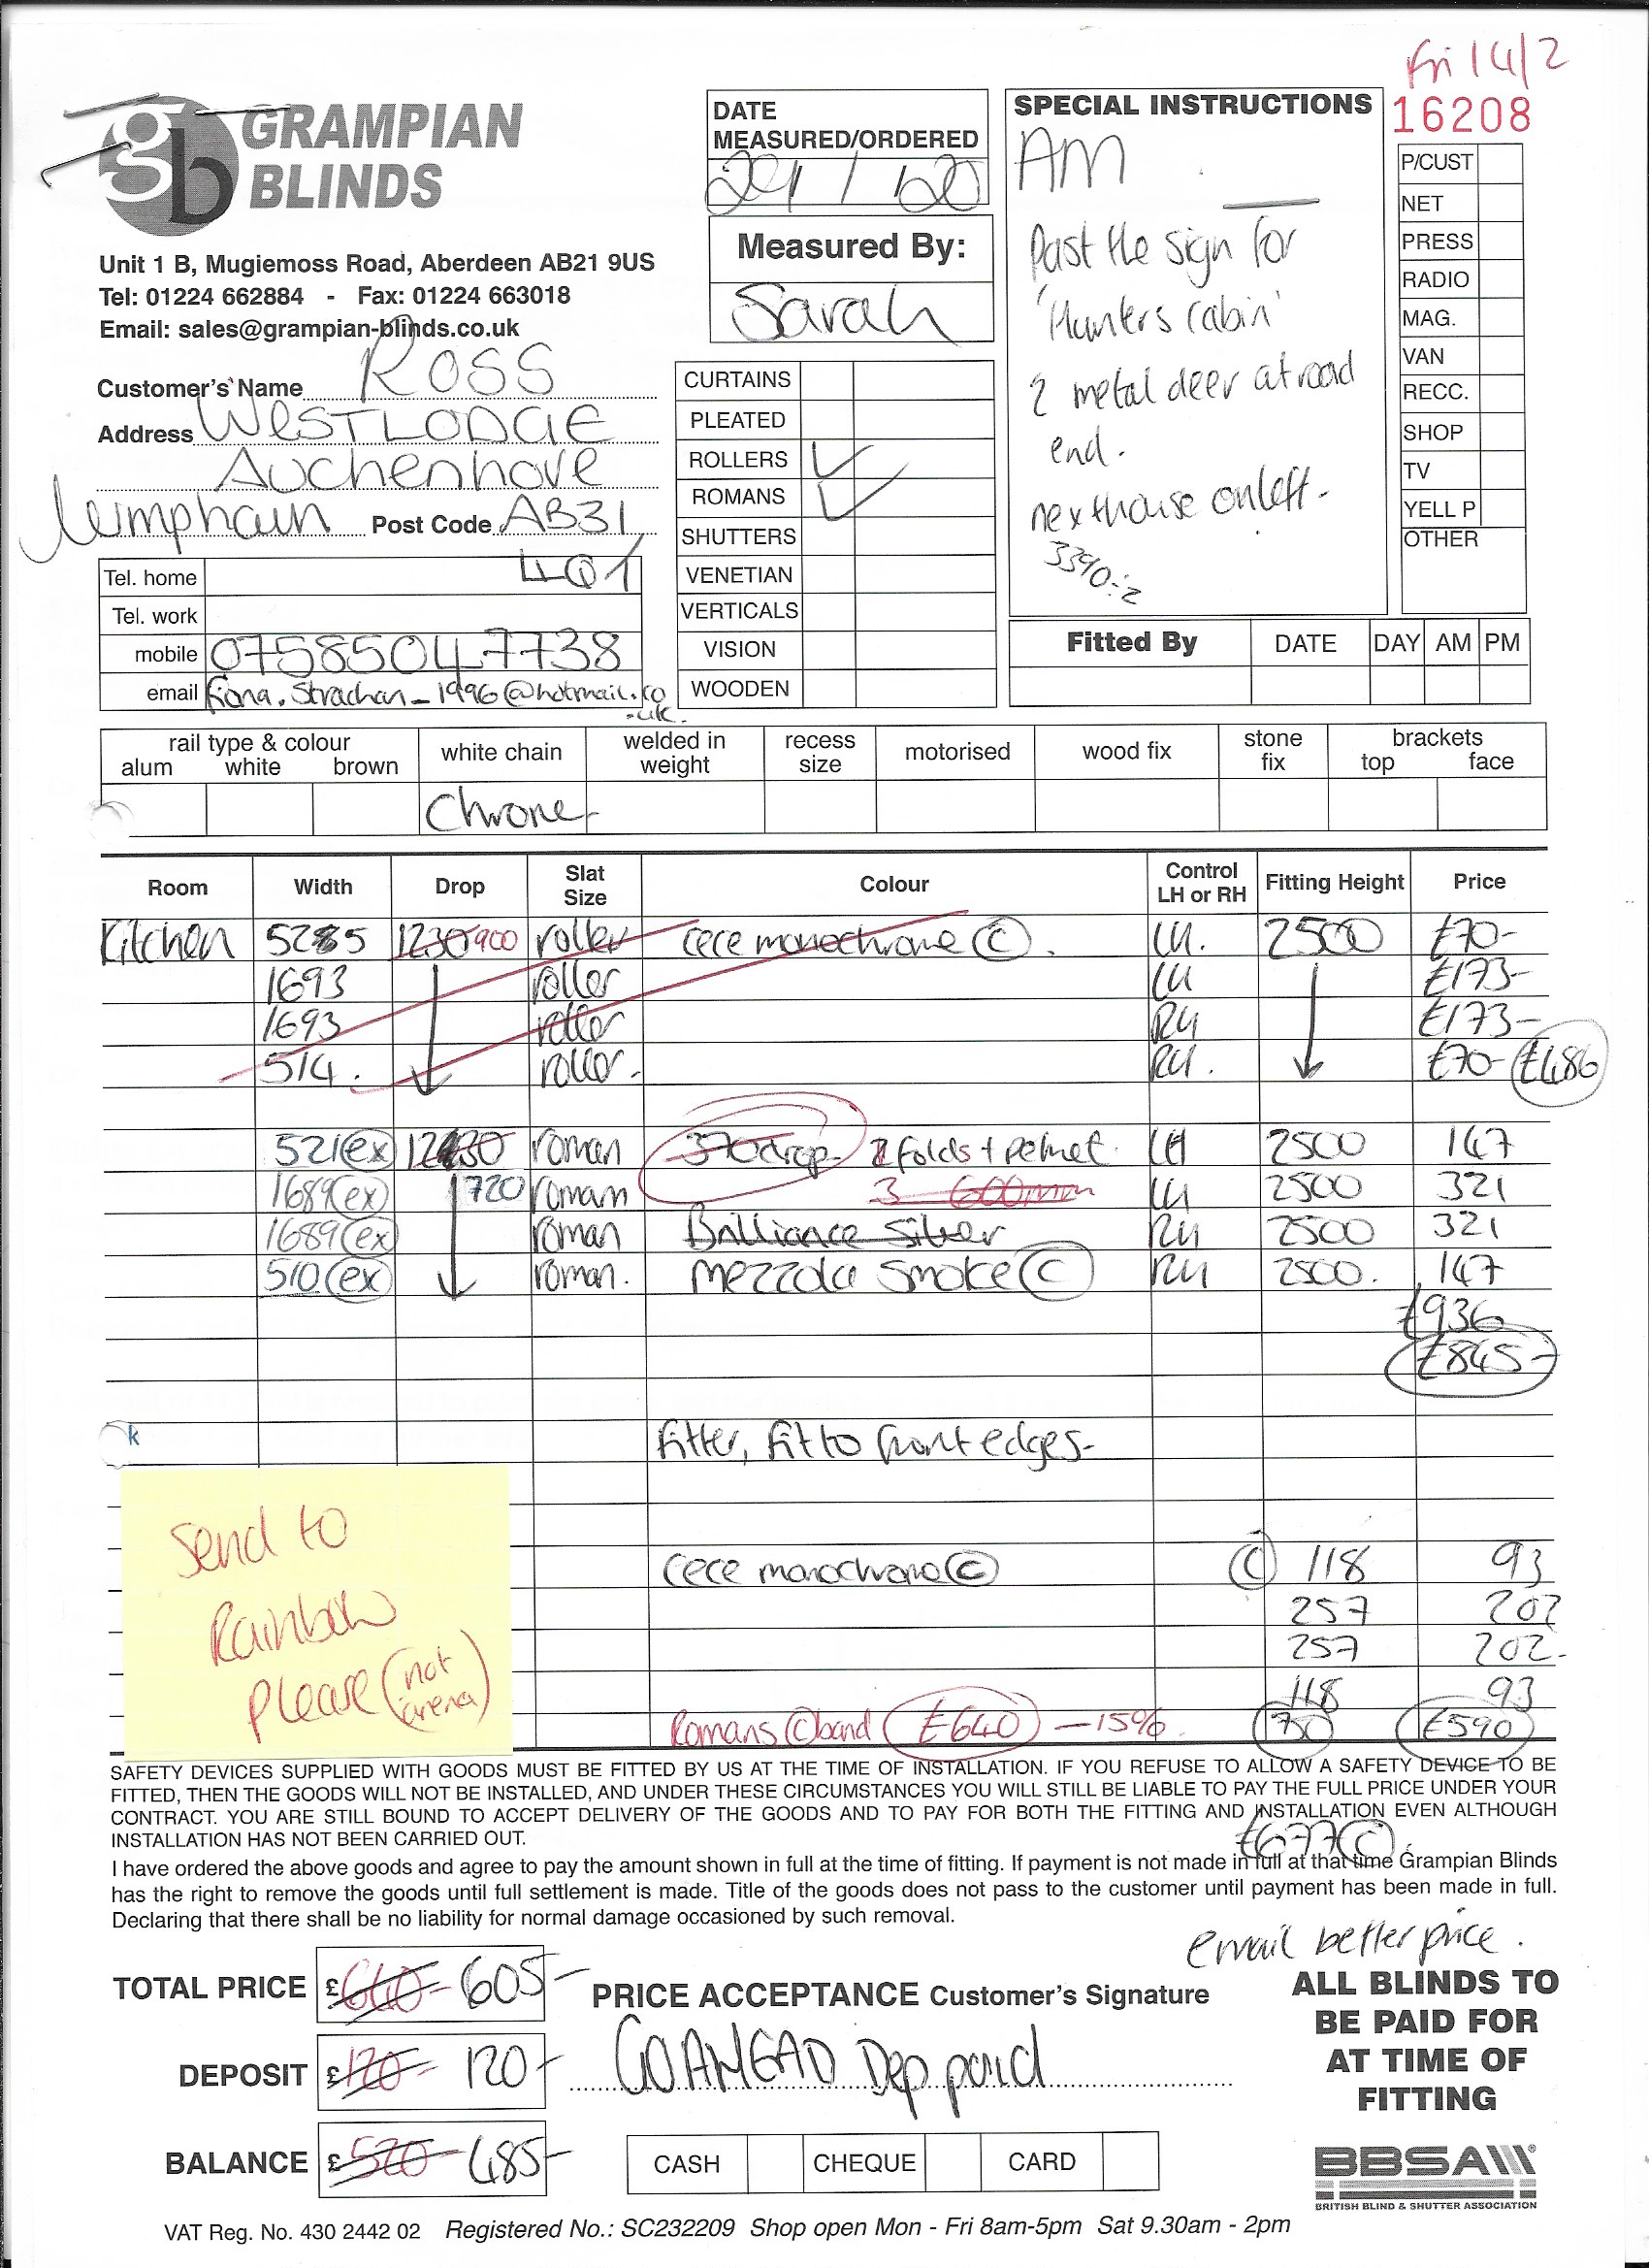 Fri 14/2
16208
gb GRAMPIAN BLINDS
Unit 1 B, Mugiemoss Road, Aberdeen AB21 9US
Tel: 01224 662884 - Fax: 01224 663018
Email: sales@grampian-blinds.co.uk
Customer's Name ROSS
Address WESTLODGE
Auchenhove
Lumphain Post Code AB31
4Q1
Tel. home
Tel. work
mobile 07585047738
email fiona.strachan_1996@hotmail.co
.uk.
DATE
MEASURED/ORDERED
29/1/20
Measured By:
Sarah
CURTAINS
PLEATED
ROLLERS ✓
ROMANS ✓
SHUTTERS
VENETIAN
VERTICALS
VISION
WOODEN
SPECIAL INSTRUCTIONS
AM
Past the sign for
'Hunters cabin'
2 metal deer at road
end.
next house on left.
3390÷2
P/CUST
NET
PRESS
RADIO
MAG.
VAN
RECC.
SHOP
TV
YELL P
OTHER
Fitted By DATE DAY AM PM
rail type & colour
alum white brown
white chain
welded in weight
recess size
motorised
wood fix
stone fix
brackets
top face
Chrome
Room Width Drop Slat Size Colour Control LH or RH Fitting Height Price
Kitchen 5285 1230 900 roller cece monochrome (C). LH. 2500 £70-
1693 roller LH £173-
1693 roller RH £173-
514. roller. RH. £70- £486
521(ex) 1230 roman 370 drop 2 folds + pelmet. LH 2500 147
1689(ex) 720 roman 3 600mm LH 2500 321
1689(ex) roman Brilliance Silver RH 2500 321
510(ex) roman. Mezzola Smoke (C) RH 2500. 147
£936
£845-
k
Fitter, fit to front edges-
Send to
Rainbow
Please (not arena)
Cece monochrome (C) (C) 118 93
257 202
257 202-
118 93
Romans (C) band £640 -15% 750 £590
SAFETY DEVICES SUPPLIED WITH GOODS MUST BE FITTED BY US AT THE TIME OF INSTALLATION. IF YOU REFUSE TO ALLOW A SAFETY DEVICE TO BE
FITTED, THEN THE GOODS WILL NOT BE INSTALLED, AND UNDER THESE CIRCUMSTANCES YOU WILL STILL BE LIABLE TO PAY THE FULL PRICE UNDER YOUR
CONTRACT. YOU ARE STILL BOUND TO ACCEPT DELIVERY OF THE GOODS AND TO PAY FOR BOTH THE FITTING AND INSTALLATION EVEN ALTHOUGH
INSTALLATION HAS NOT BEEN CARRIED OUT.
£677(C)
I have ordered the above goods and agree to pay the amount shown in full at the time of fitting. If payment is not made in full at that time Grampian Blinds
has the right to remove the goods until full settlement is made. Title of the goods does not pass to the customer until payment has been made in full.
Declaring that there shall be no liability for normal damage occasioned by such removal.
email better price.
TOTAL PRICE £640- 605-
DEPOSIT £120- 120-
BALANCE £520- 485-
PRICE ACCEPTANCE Customer's Signature
GO AHEAD Dep paid
CASH CHEQUE CARD
ALL BLINDS TO
BE PAID FOR
AT TIME OF
FITTING
BBSA
BRITISH BLIND & SHUTTER ASSOCIATION
VAT Reg. No. 430 2442 02 Registered No.: SC232209 Shop open Mon - Fri 8am-5pm Sat 9.30am - 2pm